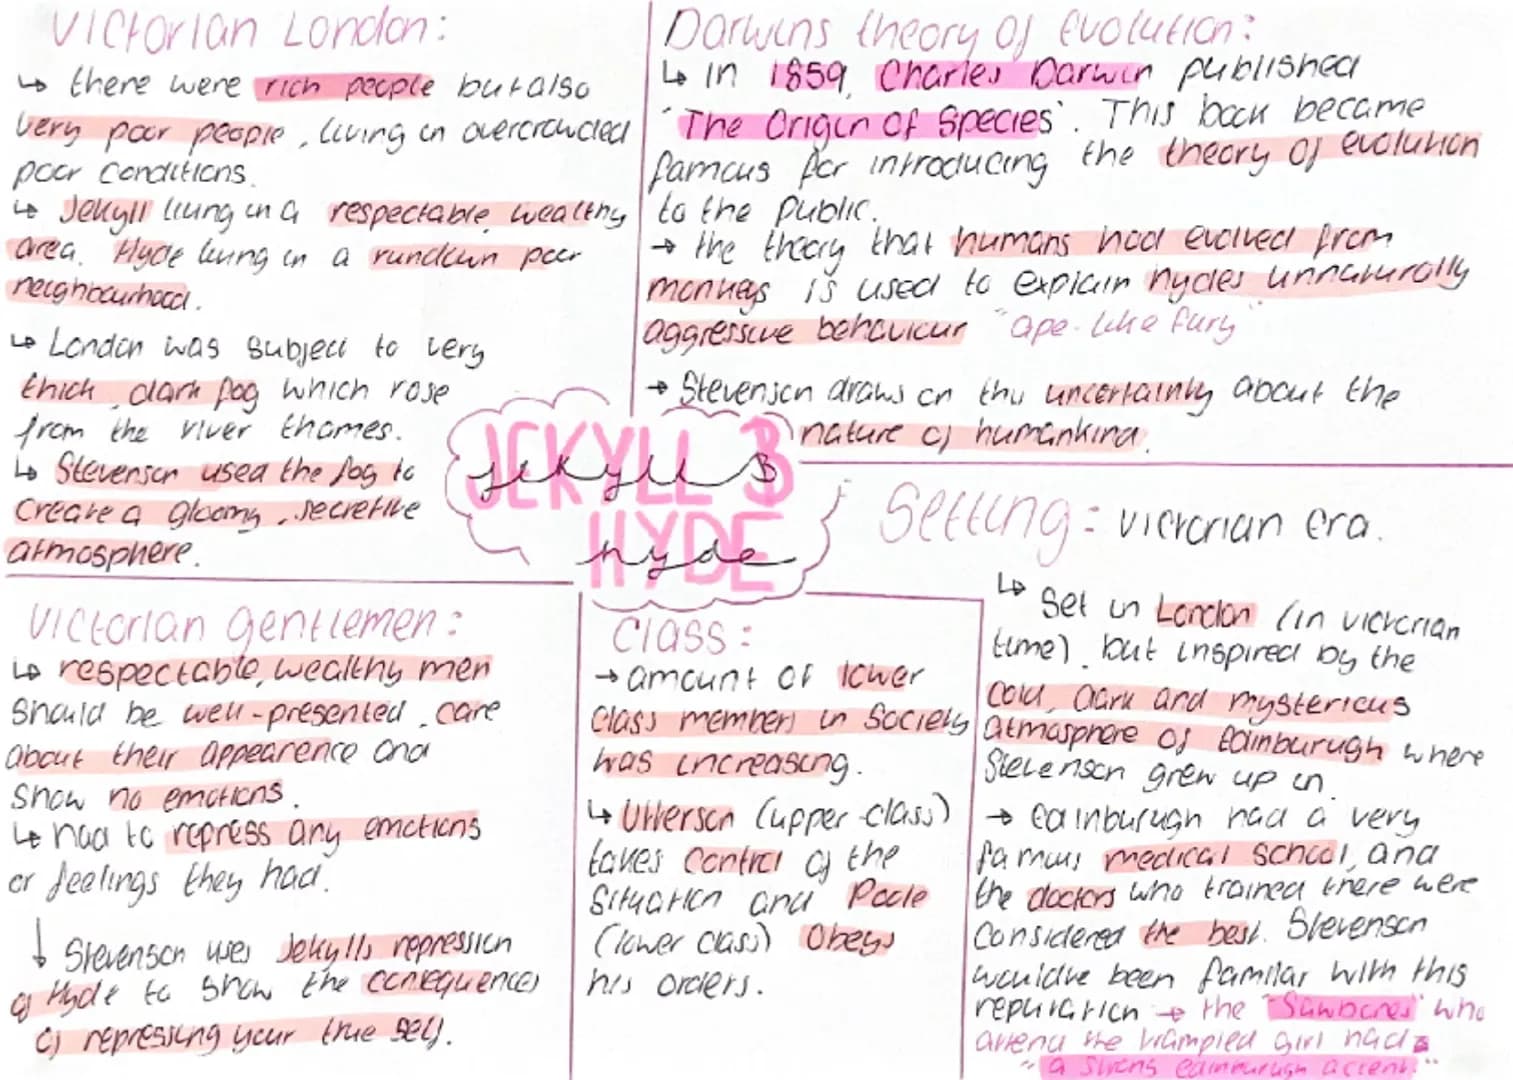 Victorian London:
↳ there were rich people but also
very poor people, living in overcrowded
poor conditions.
↳ Jekyll living in a respectable, wealthy
area. Hyde living in a rundown poor
neighbourhood.
↳ London was subject to very
thick, dark fog which rose
from the river thames.
↳ Stevenson used the fog to
create a gloomy, secretive
atmosphere.
Darwins theory of Evolution:
↳ in 1859, Charles Darwin published
'The Origin of Species'. This book became
famous for introducing the theory of evolution
to the public.
→ the theory that humans had evolved from
monkeys is used to explain hydes unnaturally
aggressive behaviour "ape-like fury"
→ Stevenson draws on the uncertainty about the
nature of humankind.
JEKYLL &
jekyll &
HYDE
hyde
Setting: victorian era.
↳ Set in London (in victorian
time), but inspired by the
cold, dark and mysterious
atmosphere of Edinburugh where
Stevenson grew up in.
→ Edinburugh had a very
famous medical school, and
the doctors who trained there were
considered the best. Stevenson
would've been familar with this
reputation → the "Sawbones" who
attend the trampled girl had
"a strong edinburugh accent."
Victorian gentlemen:
↳ respectable, wealthy men
should be well-presented, care
about their appearence and
show no emotions.
↳ had to repress any emotions
or feelings they had.
↓ Stevenson uses Jekylls repression
of Hyde to show the consequences
of repressing your true self.
Class:
→ amount of lower
class members in society
was increasing.
↳ Utterson (upper-class)
takes control of the
situation and Poole
(lower class) obeys
his orders.